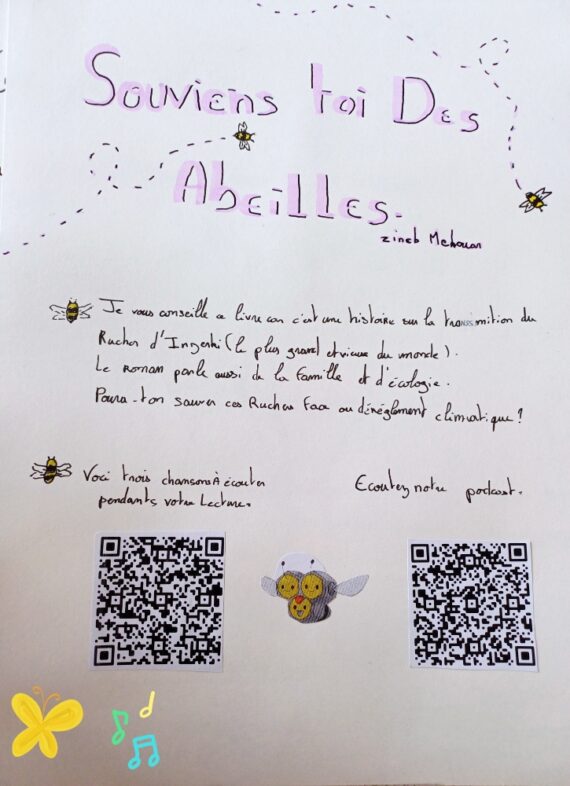 Souviens toi Des
Abeilles.
zineb Mekouar
Je vous conseille ce livre car c'est une histoire sur la transmition du
Rucher d'Inzerki (le plus grand et vieux du monde).
Le roman parle aussi de la famille et d'écologie.
Poura-t-on sauver ces Ruchers Face au déréglement climatique ?
Voci trois chansons À écouter
pendants votre Lecture.
Ecoutez notre podcast.